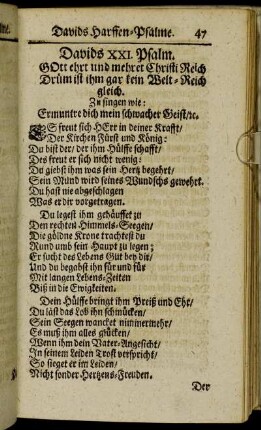 Davids Harffen-Psalme. 47
Davids XXI. Psalm.
GOtt ehrt und mehret Christi Reich
Drüm ist ihm gar kein Welt-Reich
gleich.
Zu singen wie:
Ermuntre dich mein schwacher Geist/ꝛc.
ES freut sich HErr in deiner Krafft/
Der Kirchen Fürst und König:
Du bist der/ der ihm Hülffe schafft/
Des freut er sich nicht wenig:
Du giebst ihm was sein Hertz begehrt/
Sein Mund wird seines Wundschs gewehrt.
Du hast nie abgeschlagen
Was er dir vorgetragen.
Du legest ihm gehäuffet zu
Den rechten Himmels-Seegen/
Die göldne Krone trachtest du
Rund umb sein Haupt zu legen;
Er sucht des Lebens Gut bey dir/
Und du begabst ihn für und für
Mit langen Lebens-Zeiten
Biß in die Ewigkeiten.
Dein Hülffe bringt ihm Preiß und Ehr/
Du läst das Lob ihn schmücken/
Sein Seegen wancket nimmermehr/
Es muß ihm alles glücken/
Wenn ihm dein Vater-Angesicht/
In seinem Leiden Trost verspricht/
So sieget er im Leiden/
Nicht sonder Hertzens-Freuden.
Der